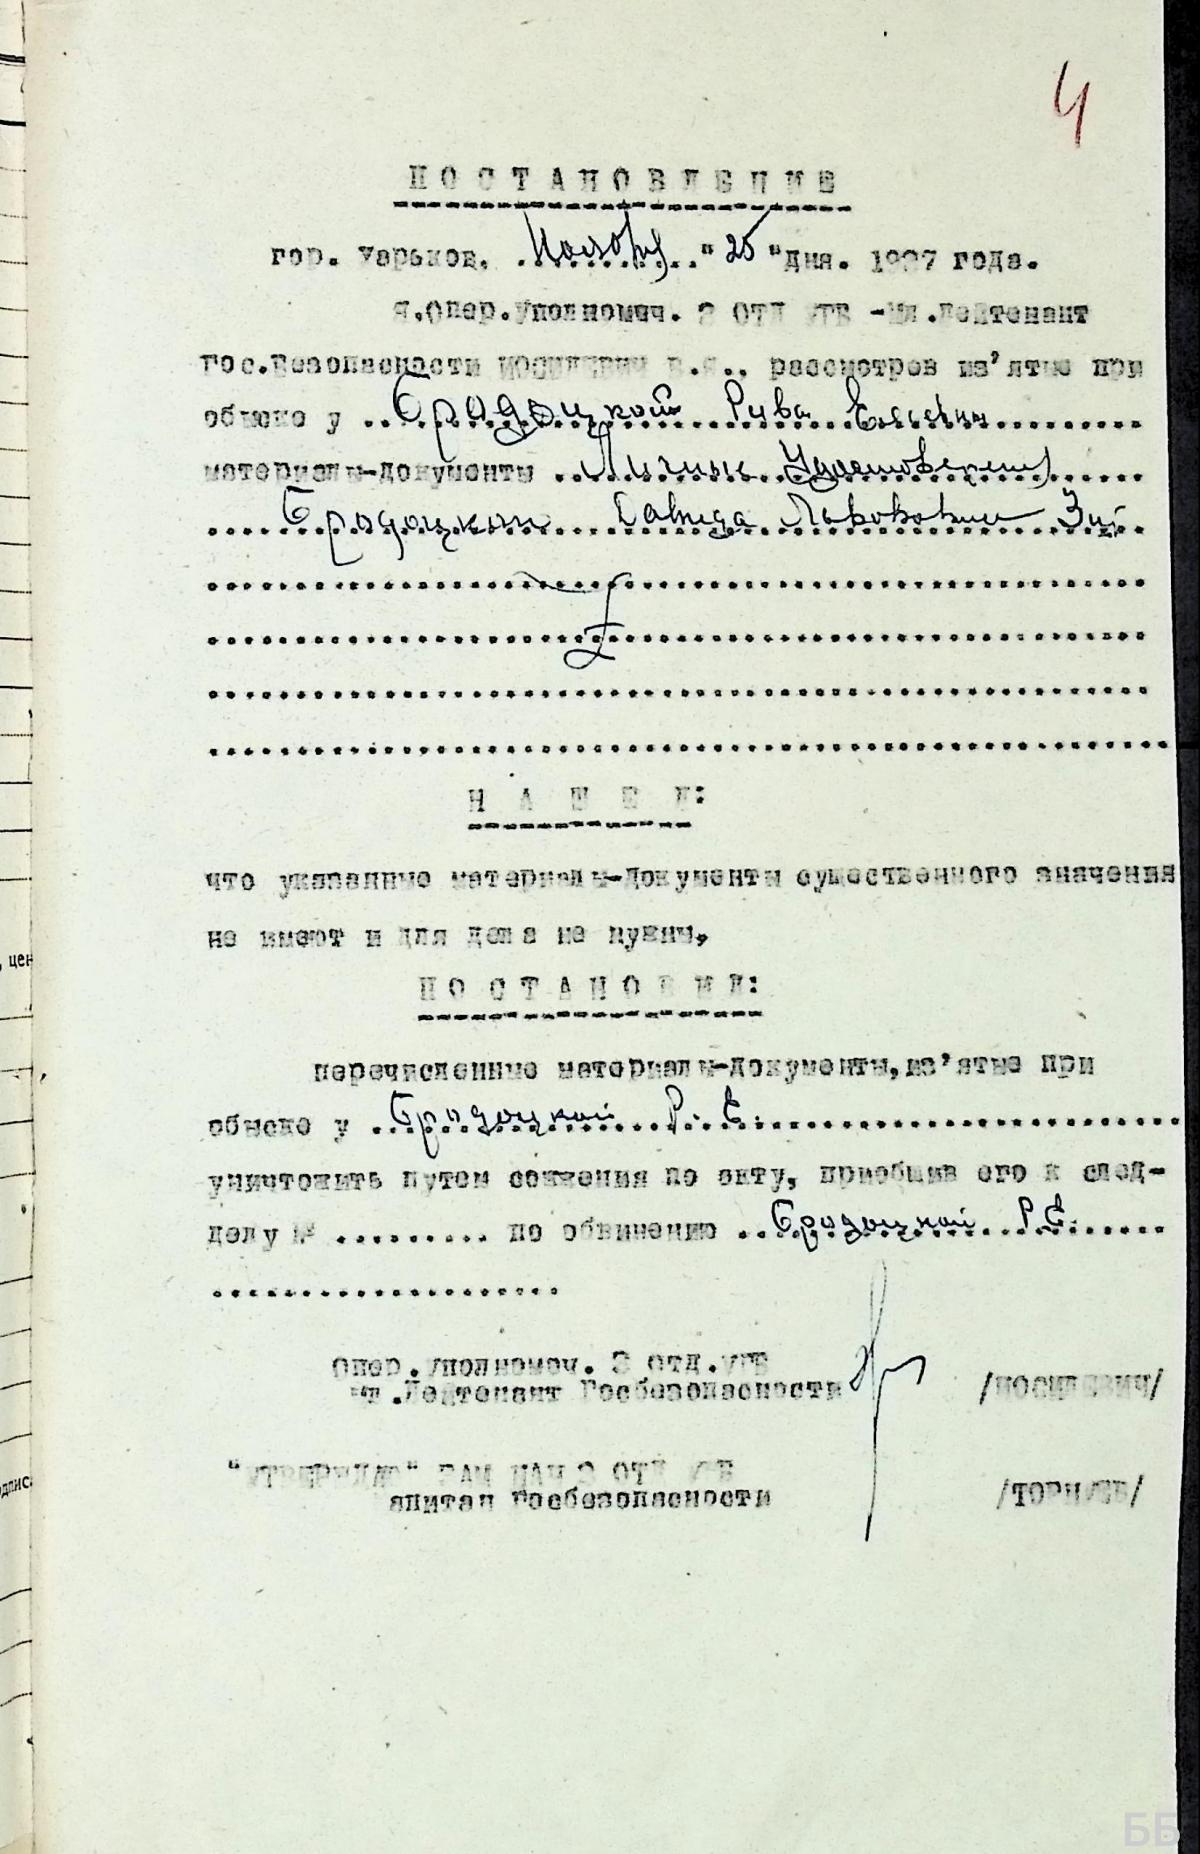 4
ПОСТАНОВЛЕНИЕ
гор. Харьков, Ноября "25" дня. 1937 года.
Я, Опер.Уполномоч. 3 ОТД УГБ - Мл.Лейтенант
Гос.Безопасности ИОСИЛЕВИЧ рассмотрев из'ятые при
обыске у Бродоцкой Рива
материалы-документы Личные Удостоверения
Бродоцким Давида Львовович
НАШЕЛ:
что указанные материалы-документы существенного значения
не имеют и для дела не нужны,
ПОСТАНОВИЛ:
перечисленные материалы-документы, из'ятые при
обыске у Бродоцкой Р. Е.
уничтожить путем сожжения по акту, приобщив его к след-
делу № .......... по обвинению Бродоцкой Р.Е.
Опер.Уполномоч. 3 отд.УГБ
Мл.Лейтенант Госбезопасности /ИОСИЛЕВИЧ/
"УТВЕРЖДАЮ" ЗАМ НАЧ 3 ОТД УГБ
Капитан Госбезопасности /ТОРНУЕВ/
, цен
одпис
ББ